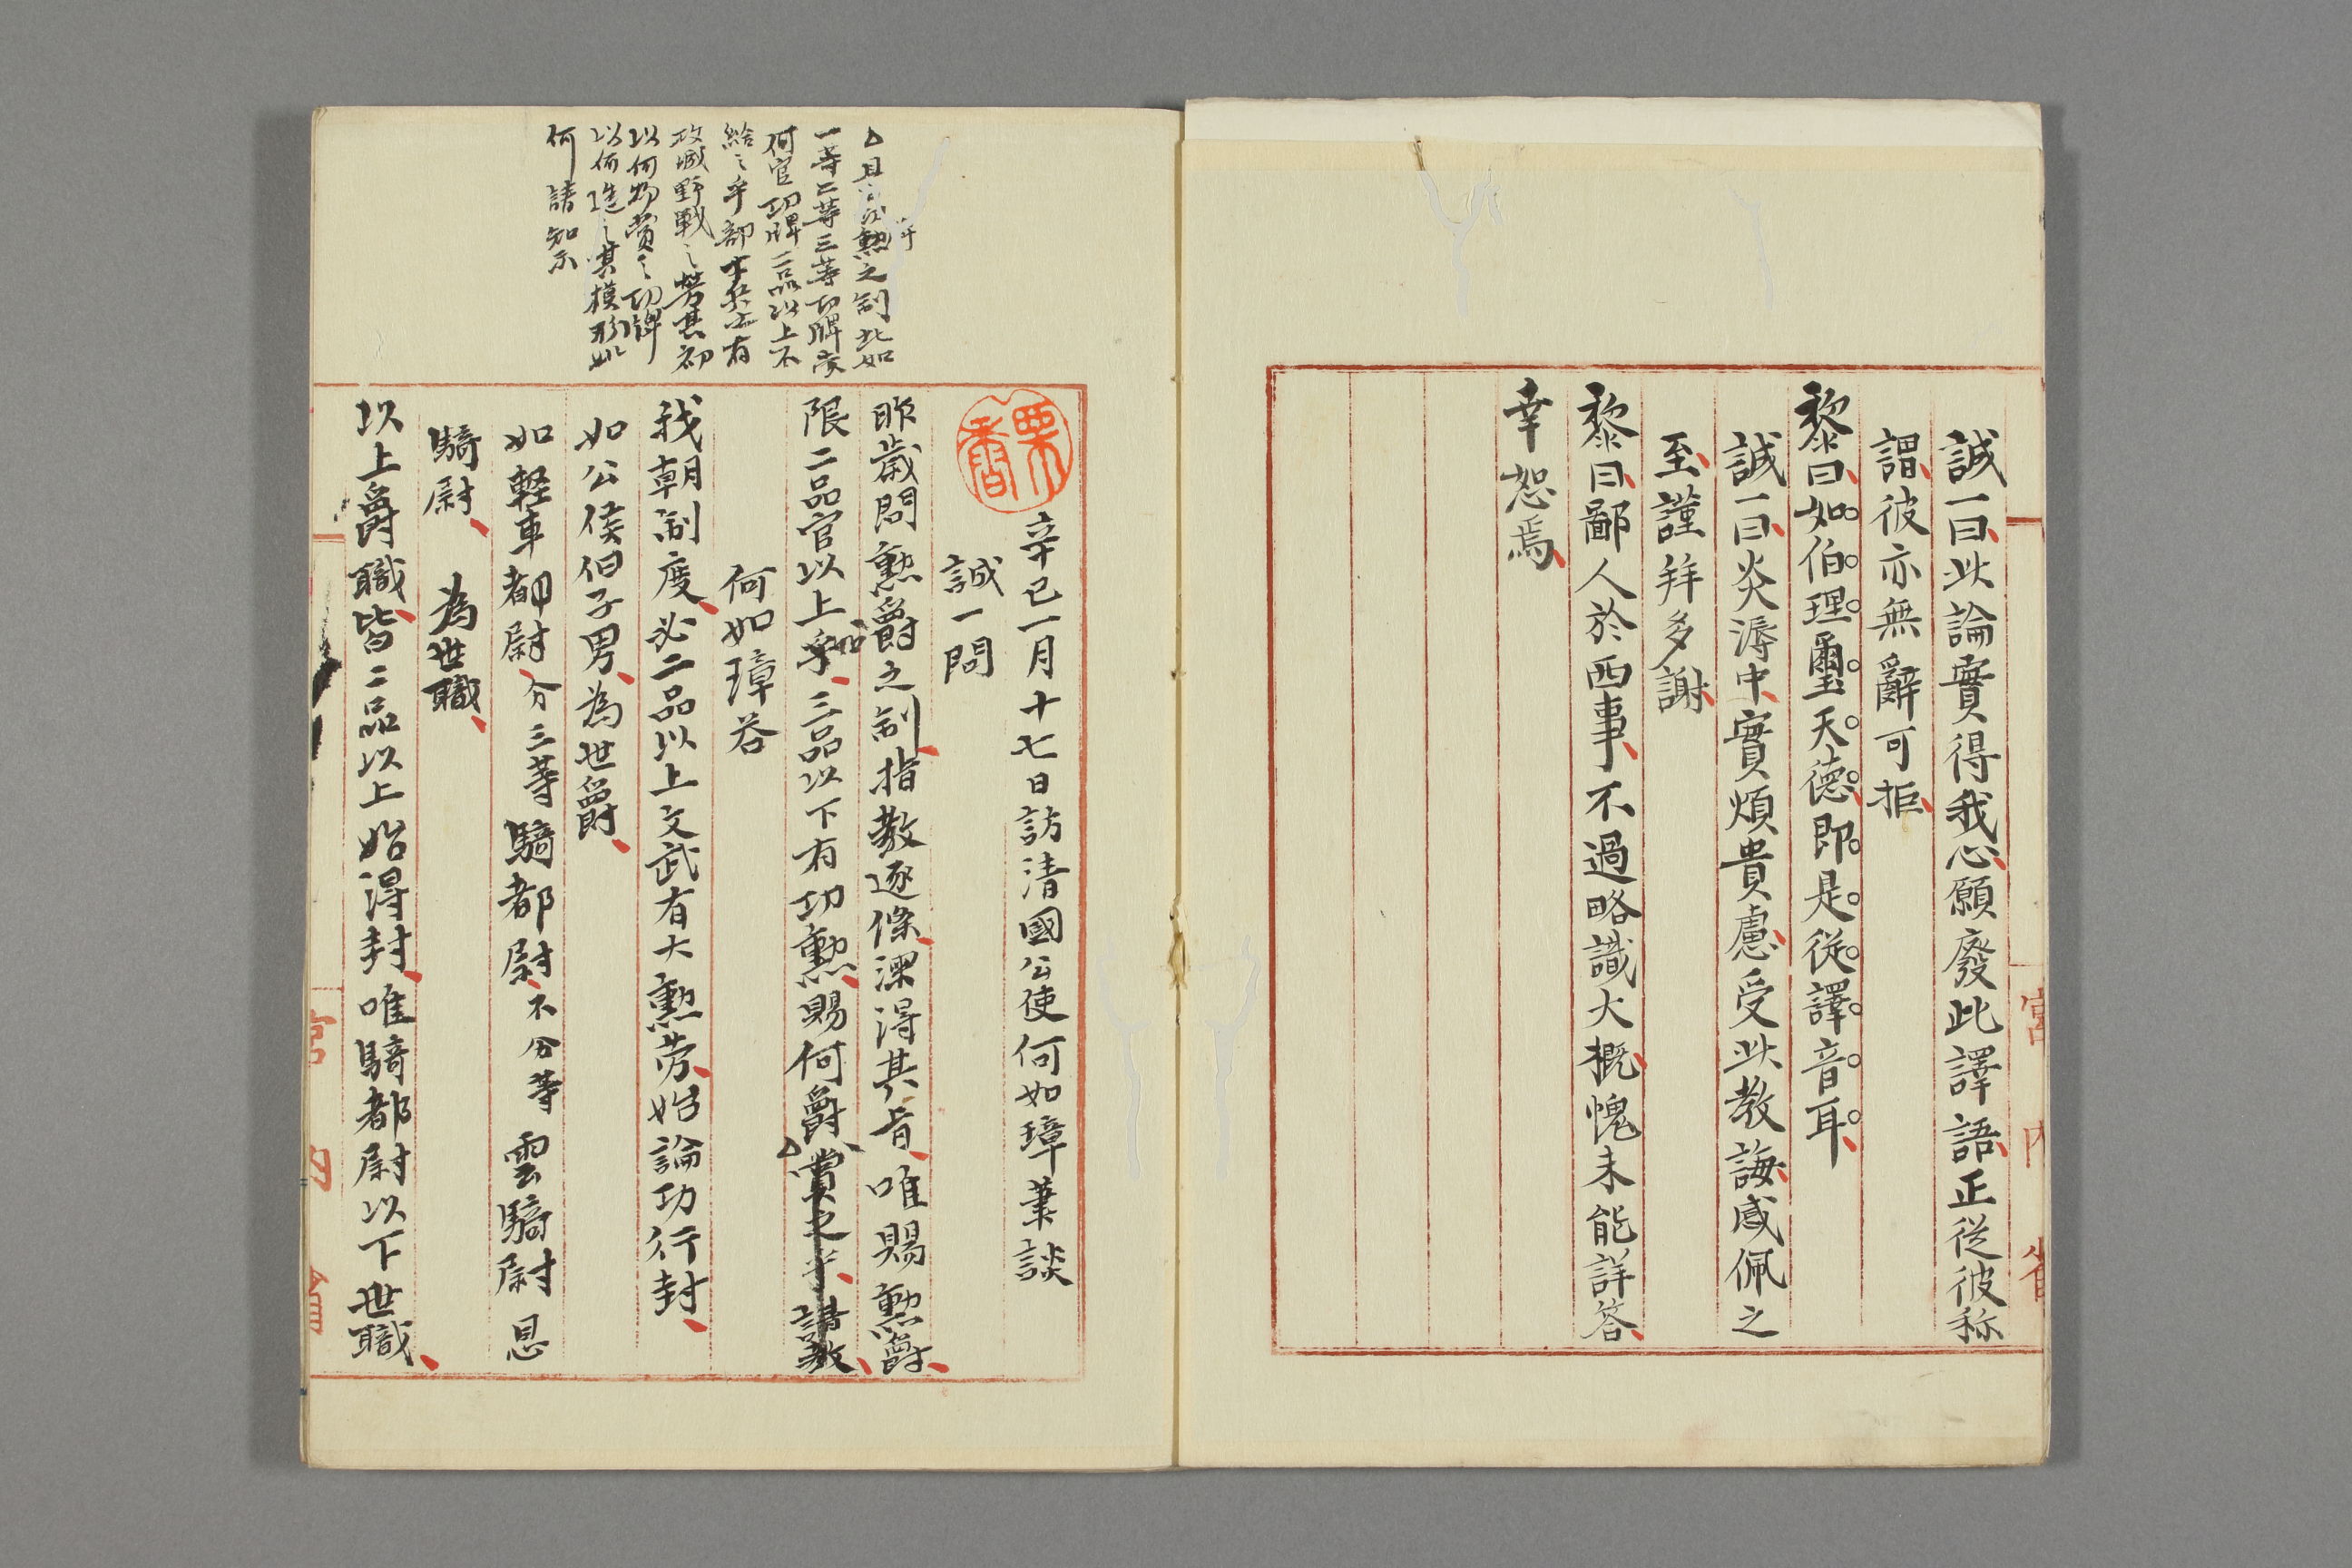 誠一曰此論實得我心願廢此譯語正從彼称
謂彼亦無辭可拒
黎曰如伯理璽天德即是從譯音耳
誠一曰炎溽中實煩貴慮受此教誨感佩之
至謹拜多謝
黎曰鄙人於西事不過略識大概愧未能詳答
幸恕焉
宮內省
辛巳一月十七日訪清國公使何如璋筆談
栗香
誠一問
昨歲問勲爵之制指教逐條深得其旨唯賜勲爵
限二品官以上乎三品以下有功勲賜何爵賞之乎請教
何如璋答
我朝制度必二品以上文武有大勲劳始論功行封
如公侯伯子男為世爵
如軽車都尉分三等騎都尉不分等雲騎尉恩
騎尉為世職
以上爵職皆二品以上始得封唯騎都尉以下世職
勲之制如
一等二等三等功牌
何官功牌二品以上不
給之乎部士兵有
攻城野戦之労其初
以何物賞之功牌
以何造之其模形如
何請知示
宮內省